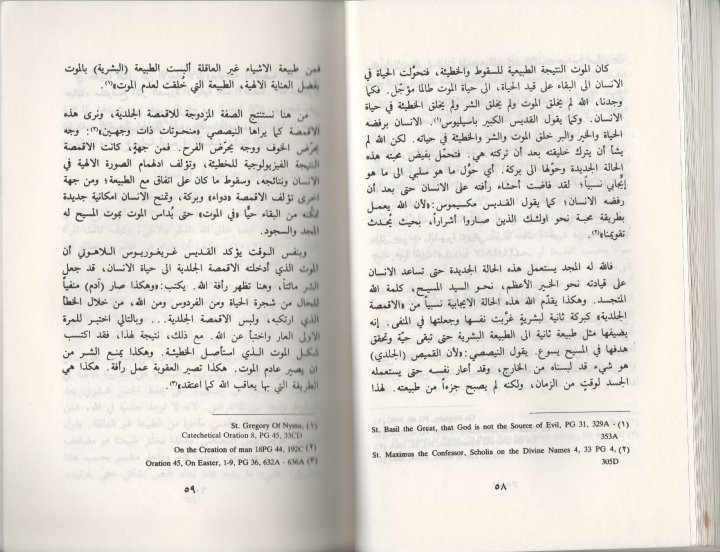 كان الموت النتيجة الطبيعية للسقوط والخطيئة، فتحوَّلت الحياة في
الانسان الى البقاء على قيد الحياة، الى حياة الموت طالما مؤجل. فكما
وجدنا، الله لم يخلق الموت ولم يخلق الشر ولم يخلق الخطيئة في حياة
الانسان. وكما يقول القديس الكبير باسيليوس(١). الانسان برفضه
الحياة والخير والبر خلق الموت والشر والخطيئة في حياته. لكن الله لم
يشأ أن يترك خليقته بعد أن تركته هي. فتحمّل بفيض محبته هذه
الحالة الجديدة وحوّلها الى بركة. أي حوَّل ما هو سلبي الى ما هو
إيجابي نسبياً؛ لقد فاضت أحشاء رأفته على الانسان حتى بعد أن
رفضه الانسان؛ كما يقول القديس مكسيموس: «لأن الله يعمل
بطريقة محبة نحو اولئك الذين صاروا أشراراً، بحيث يُحدث
تقويمنا»(٢).
فالله له المجد يستعمل هذه الحالة الجديدة حتى تساعد الانسان
على قيادته نحو الخير الأعظم، نحو السيد المسيح، كلمة الله
المتجسد. وهكذا يقدَّم الله هذه الحالة الايجابية نسبياً من «الاقمصة
الجلدية» كبركة ثانية لبشرية غرَّبت نفسها وجعلتها في المنفى. إنه
يضيفها مثل طبيعة ثانية الى الطبيعة البشرية حتى تبقى حيّة وتحقق
هدفها في المسيح يسوع. يقول النيصصي: «لأن القميص (الجلدي)
هو شيء قد لبسناه من الخارج، وقد أعار نفسه حتى يستعمله
الجسد لوقتٍ من الزمان، ولكنه لم يصبح جزءاً من طبيعته. لهذا
St. Basil the Great, that God is not the Source of Evil, PG 31, 329A - (١)
353A
St. Maximus the Confessor, Scholia on the Divine Names 4, 33 PG 4, (٢)
305D
٥٨
فمن طبيعة الاشياء غير العاقلة ألبست الطبيعة (البشرية) بالموت
بفضل العناية الالهية، الطبيعة التي خُلقت لعدم الموت»(١).
من هنا نستنتج الصفة المزدوجة للاقمصة الجلدية، ونرى هذه
الاقمصة كما يراها النيصصي «منحوتات ذات وجهين»(٢): وجه
يحرّض الخوف ووجه يحرّض الفرح. فمن جهةٍ، كانت الاقمصة
النتيجة الفيزيولوجية للخطيئة، وتؤلف ادلهمام الصورة الالهية في
الانسان ونتائجه، وسقوط ما كان على اتفاق مع الطبيعة؛ ومن جهة
اخرى تؤلف الاقمصة «دواء» وبركة، وتمنح الانسان امكانية جديدة
تمكّنه من البقاء حيًّا «في الموت» حتى يُداس الموت بموت المسيح له
المجد والسجود.
وبنفس الوقت يؤكد القديس غريغوريوس اللاهوتي أن
الموت الذي أدخلته الاقمصة الجلدية الى حياة الانسان، قد جعل
الشر مائتاً، وهنا تظهر رأفة الله. يكتب: «وهكذا صار (آدم) منفياً
للحال من شجرة الحياة ومن الفردوس ومن الله، من خلال الخطأ
الذي ارتكبه، ولبس الاقمصة الجلدية... وبالتالي اختبر للمرة
الاولى العار واختبأ عن الله. مع ذلك، نتيجة لهذا، فقد اكتسب
شكل الموت الذي استأصل الخطيئة. وهكذا يمنع الشر من
ان يصير عادم الموت. هكذا تصير العقوبة عمل رأفة. هكذا هي
الطريقة التي بها يعاقب الله كما اعتقده»(٣).
St. Gregory Of Nyssa, (١)
Catechetical Oration 8, PG 45, 33CD
On the Creation of man 18PG 44, 192C (٢)
Oration 45, On Easter, 1-9, PG 36, 632A - 636A (٣)
٥٩